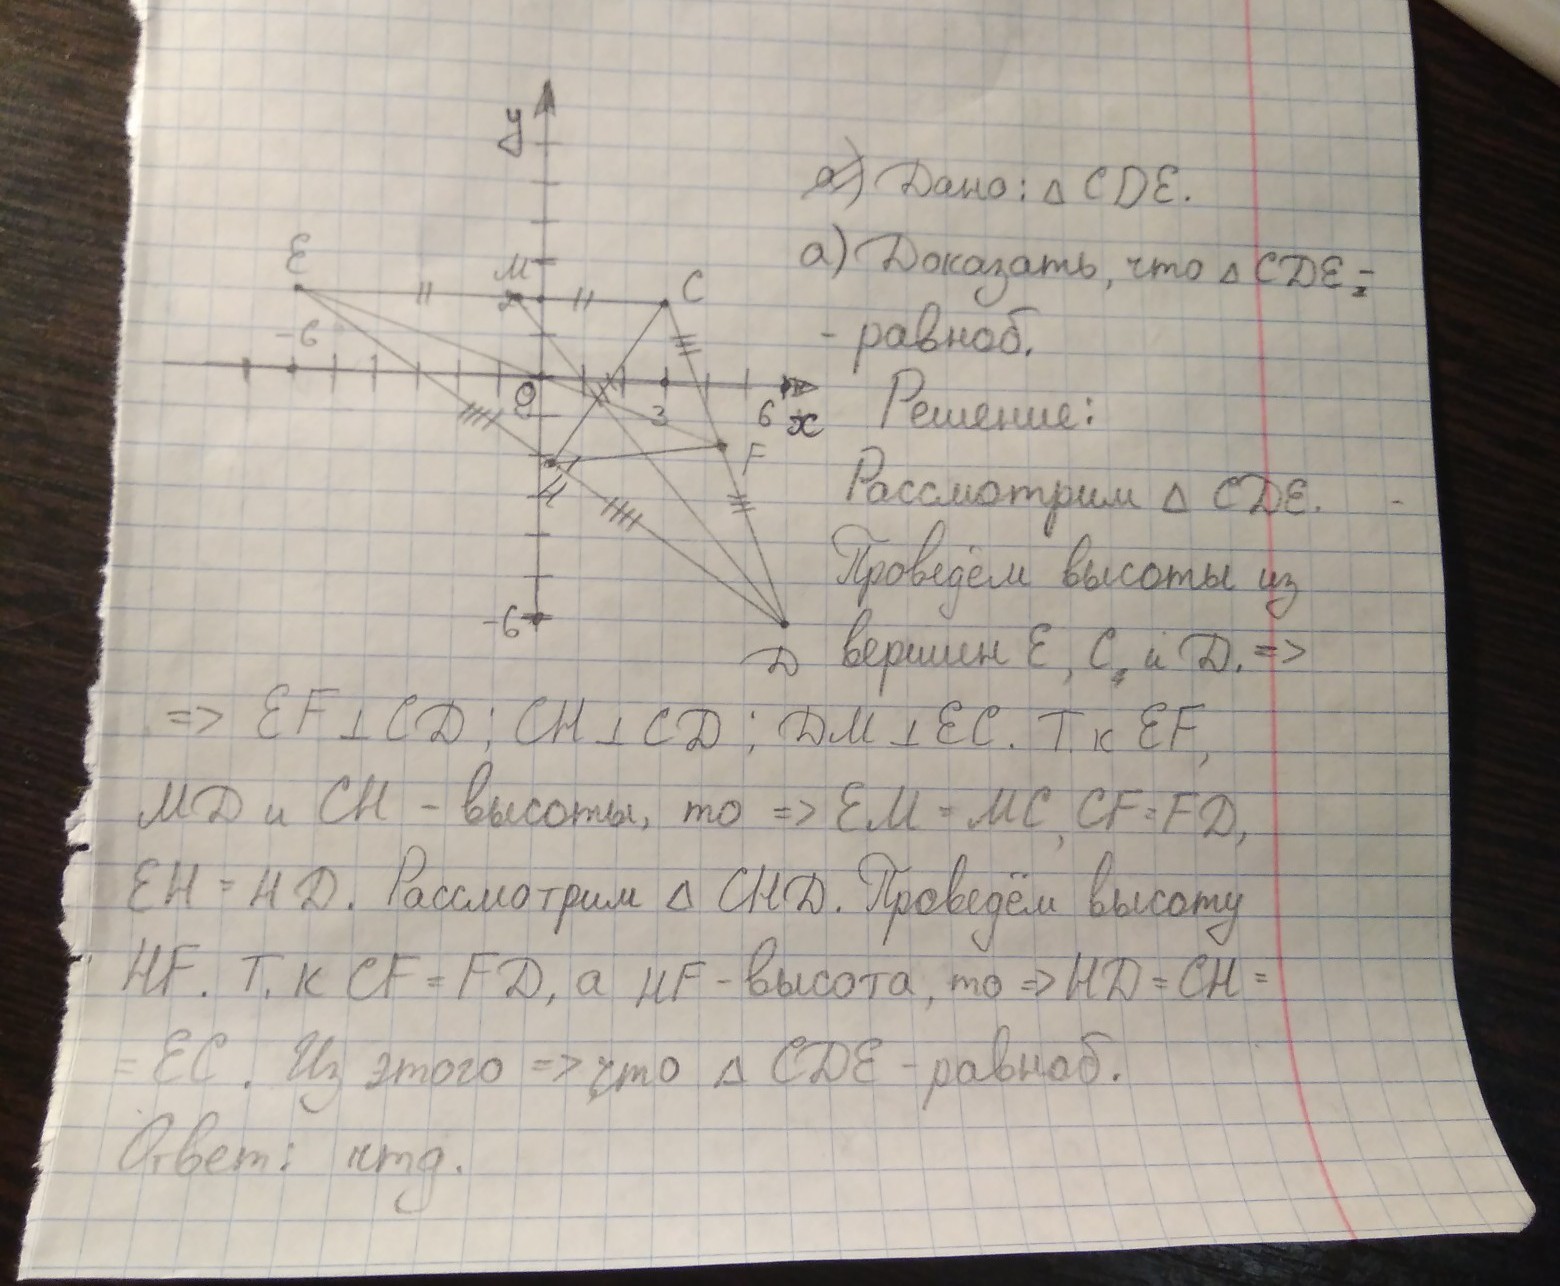 y
E
M
C
-6
2
0
3
6
x
F
H
-6
D
а) Дано: △ CDE.
а) Доказать, что △ CDE -
- равноб.
Решение:
Рассмотрим △ CDE.
Проведём высоты из
вершин E, C, и D. =>
=> EF ⊥ CD; CH ⊥ CD; DM ⊥ EC. Т.к EF,
MD и CH - высоты, то => EM = MC, CF = FD,
EH = HD. Рассмотрим △ CHD. Проведём высоту
HF. Т.к CF = FD, а HF - высота, то => HD = CH =
= EC. Из этого => что △ CDE - равноб.
Ответ: чтд.